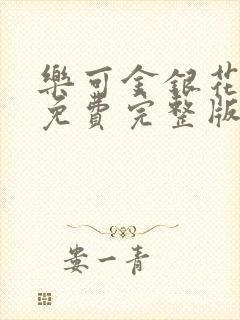 樂可金銀花
免費完整版
娄一青